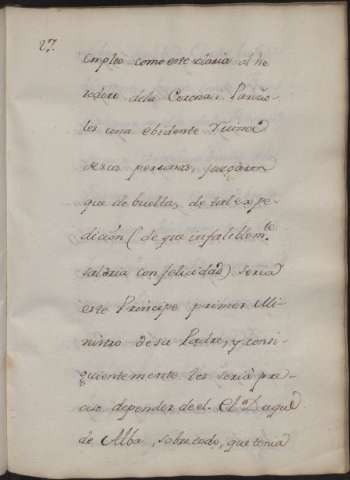 27.
empleo como este daria al he
redero dela Corona: Pareció-
les una ebidente Ruina
desus personas, juzgaron
que de buelta, de tal expe
dición (de que infaliblem.te
saldria con felicidad) seria
este Principe primer Mi
nistro desu Padre, y consi-
guientemente les seria pre-
ciso depender de el. El Duque
de Alba, sobre todo, que tenia